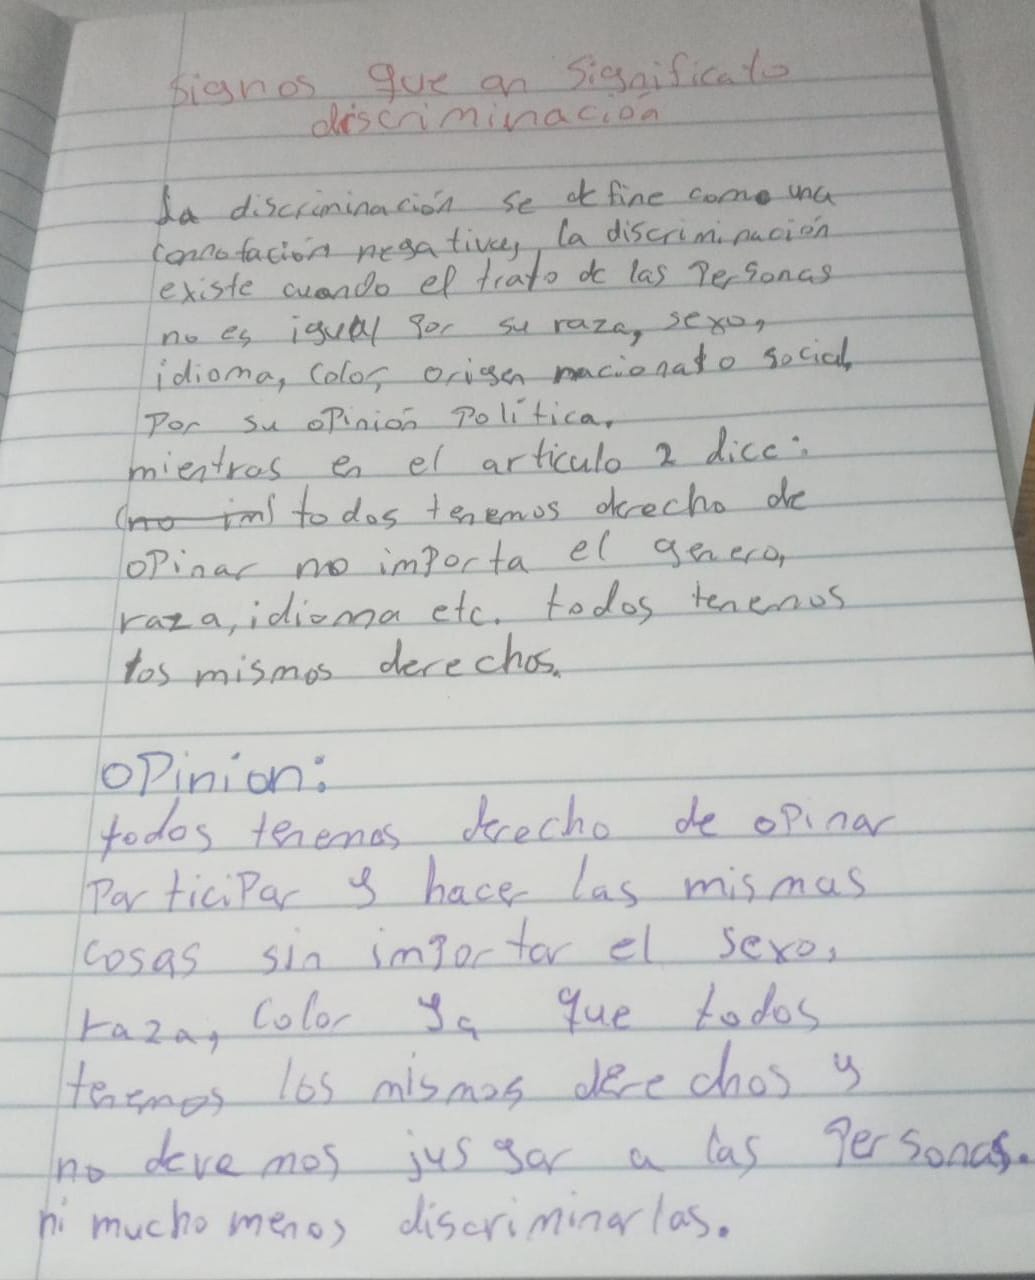 signos que an significato
discriminación
La discriminación se define como una
connotación negativa, la discriminación
existe cuando el trato de las Personas
no es igual por su raza, sexo,
idioma, color, origen nacional o social,
Por su oPinión Política.
mientras en el articulo 2 dice:
(no im) todos tenemos derecho de
oPinar no imPorta el genero,
raza, idioma etc. todos tenemos
los mismos derechos.
oPinion:
todos tenemos derecho de oPinar
ParticiPar y hacer las mismas
cosas sin importar el sexo,
raza, color ya que todos
tenemos los mismos derechos y
no devemos jusgar a las Personas.
ni mucho menos discriminarlas.